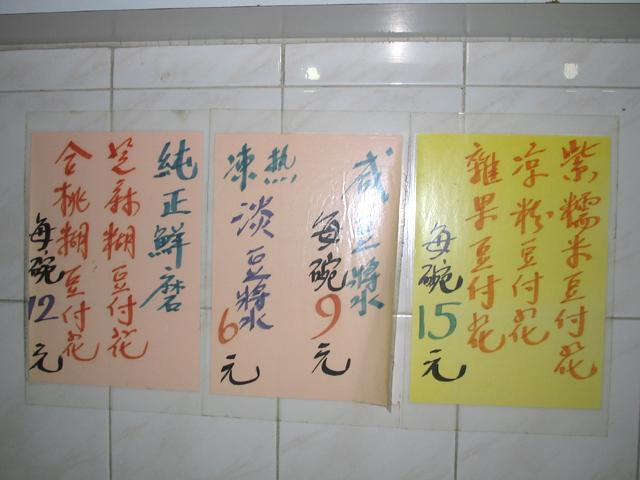 紫糯米豆付花
凉粉豆付花
雜果豆付花
每碗15元
咸豆漿
每碗9元
熱
凍
淡豆漿
6元
純正鮮磨
芝麻糊豆付花
合桃糊豆付花
每碗12元